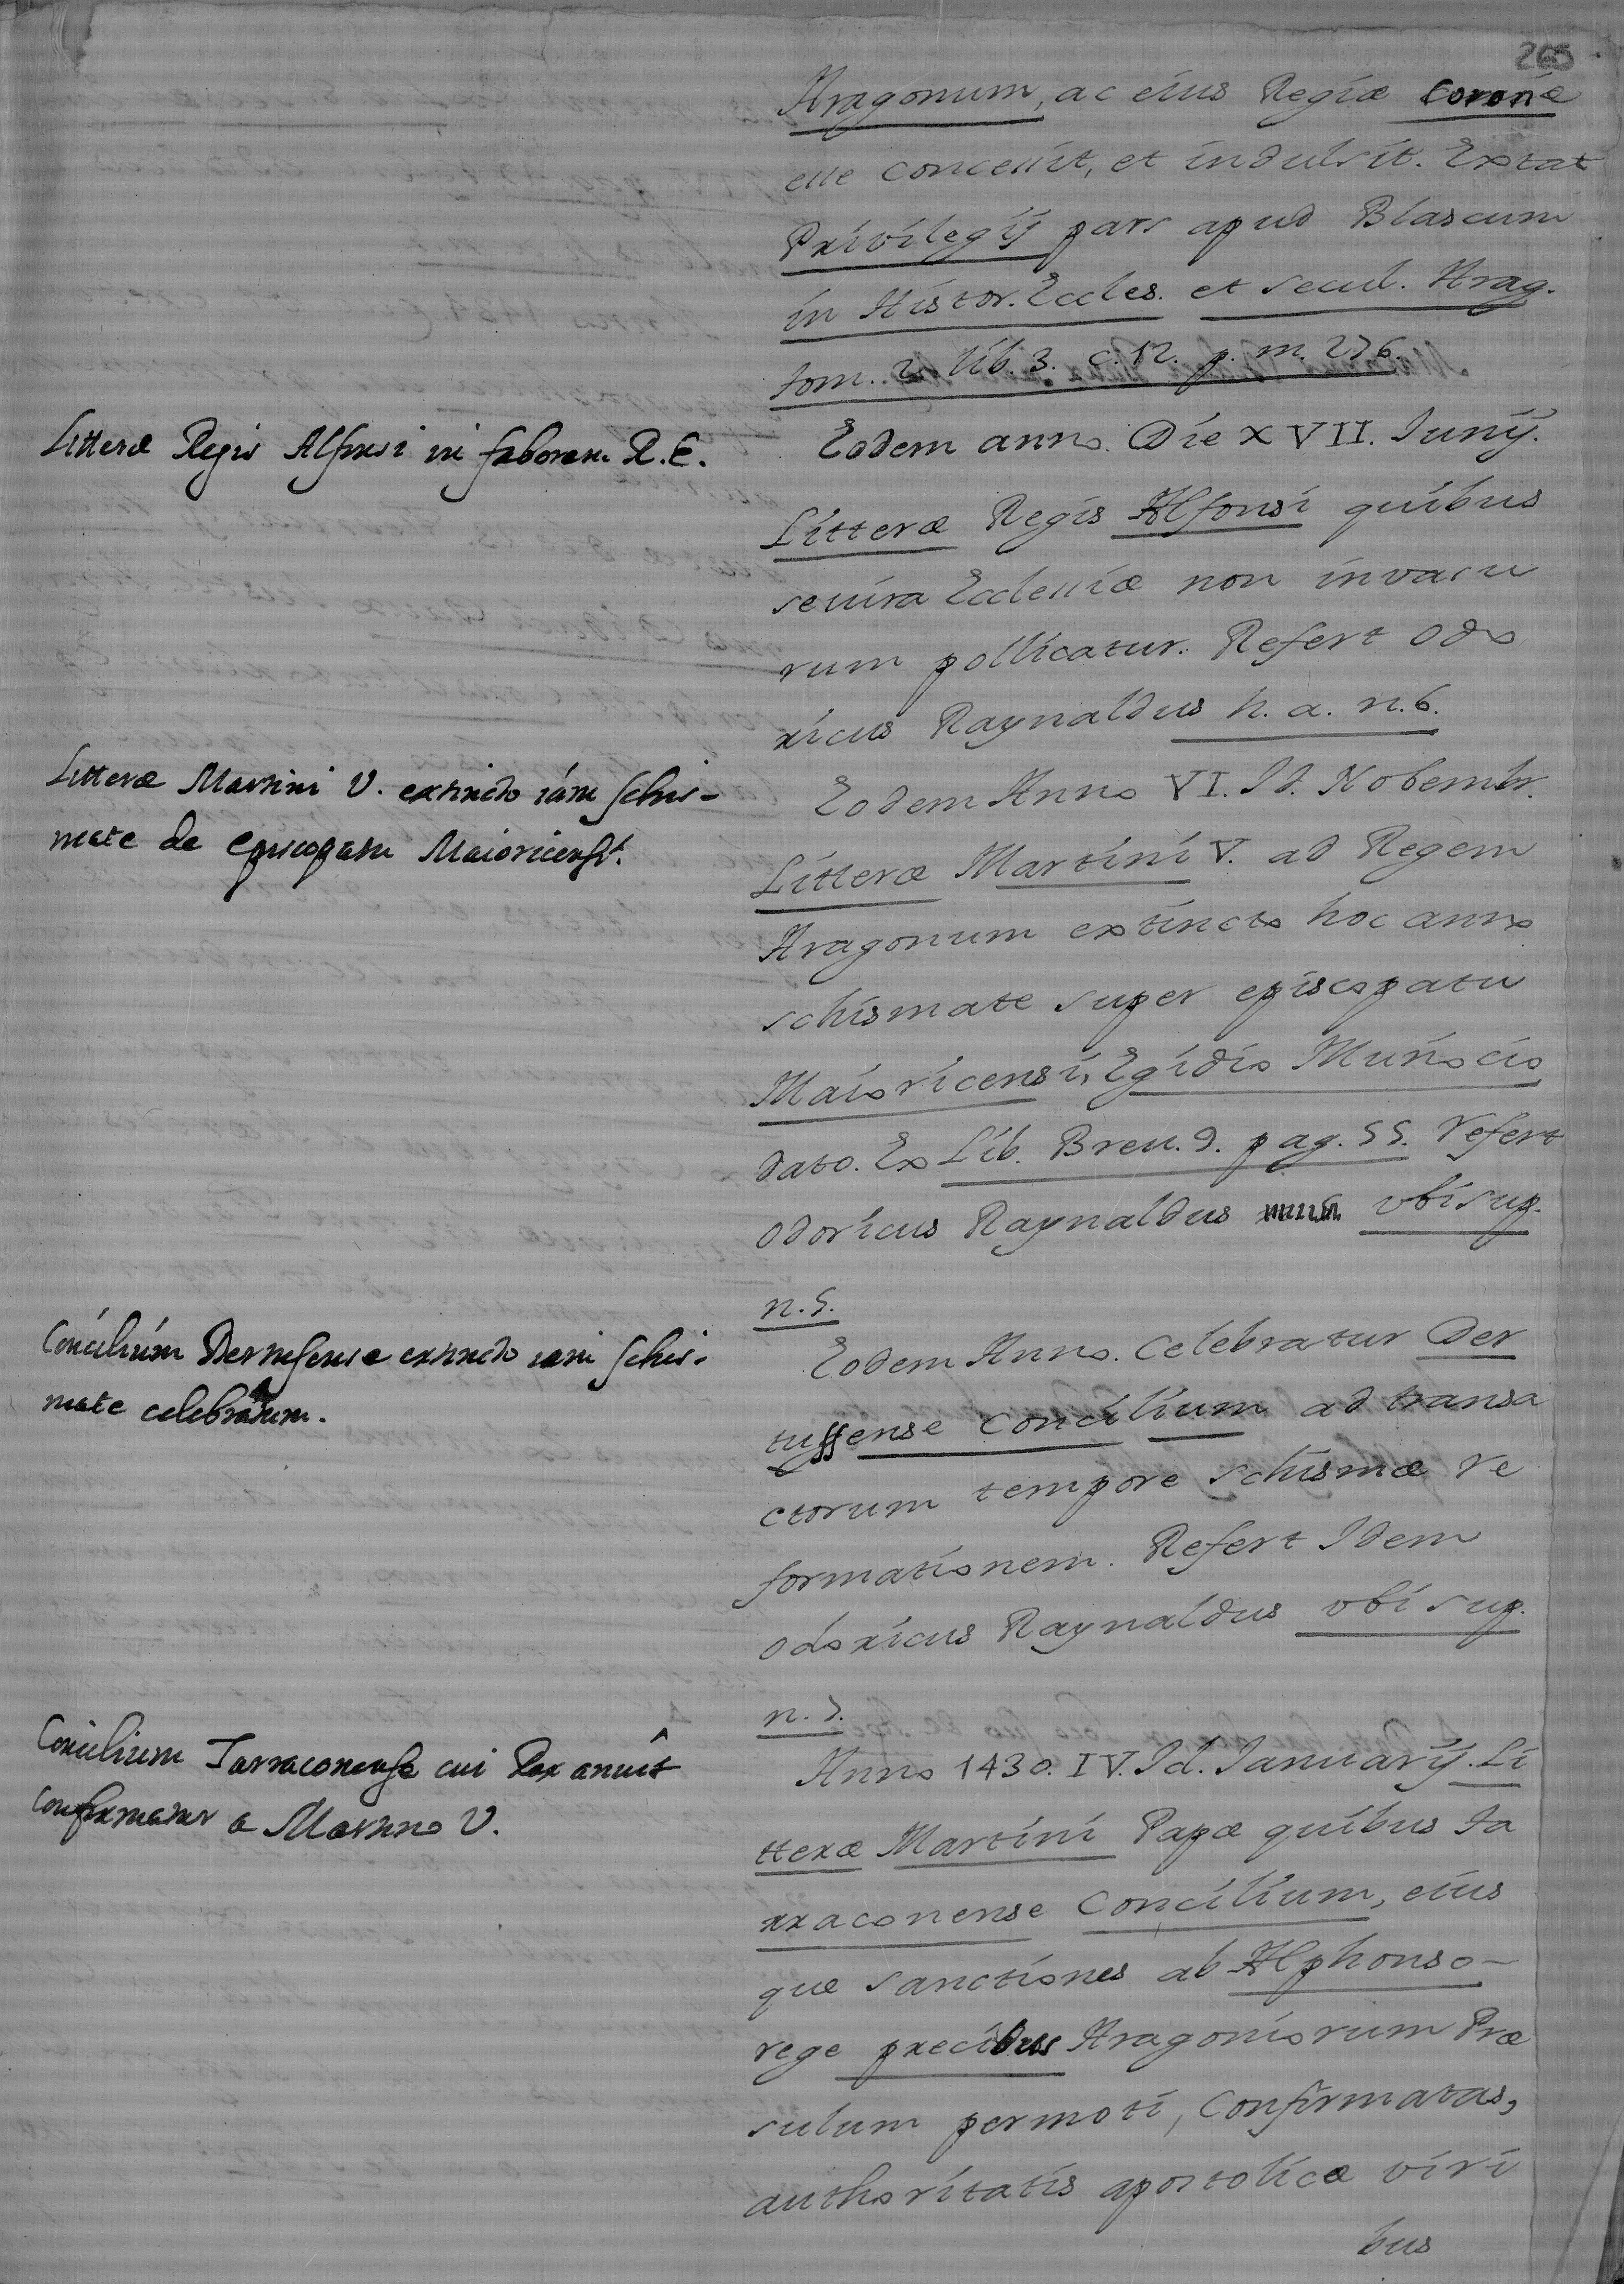 265
Aragonum, ac eius Regiæ Coronæ
esse concessit, et indulsit. Extat
Privilegij pars apud Blascum
in Histor. Eccles. et secul. Arag.
tom. 2. lib. 3. c. 12. p. m. 276.
Litteræ Regis Alfonsi in faborem R. E.
Eodem anno. Die XVII. Iunij.
Litteræ Regis Alfonsi quibus
se iura Ecclessiæ non invasu
rum pollicatur. Refert Odo
ricus Raynaldus h. a. n. 6.
Litteræ Martini V. extincto iam schis-
mate de episcopatu Maioricensi.
Eodem Anno VI. Id. Nobembr.
Litteræ Martini V. ad Regem
Aragonum extincto hoc anno
schismate super episcopatu
Maioricensi, Egidio Muñocio
dato. Ex Lib. Breu. 9. pag. 55. refert
Odoricus Raynaldus vbi sup.
n. 5.
Concilium Dertusense extincto iam schis-
mate celebratum.
Eodem Anno. Celebratur Der
tussense Concilium ad transa
ctorum tempore schismæ re
formationem. Refert Idem
Odoricus Raynaldus vbi sup.
n. 7.
Concilium Tarraconense cui Rex anuit
confirmatur a Martino V.
Anno 1430. IV. Id. Ianuarij. Li
tteræ Martini Papæ quibus Ta
rraconense Concilium, eius
que sanctiones ab Alphonso-
rege precibus Aragoniorum Præ
sulum permoti, Confirmatas,
authoritatis apostolicæ viri
bus